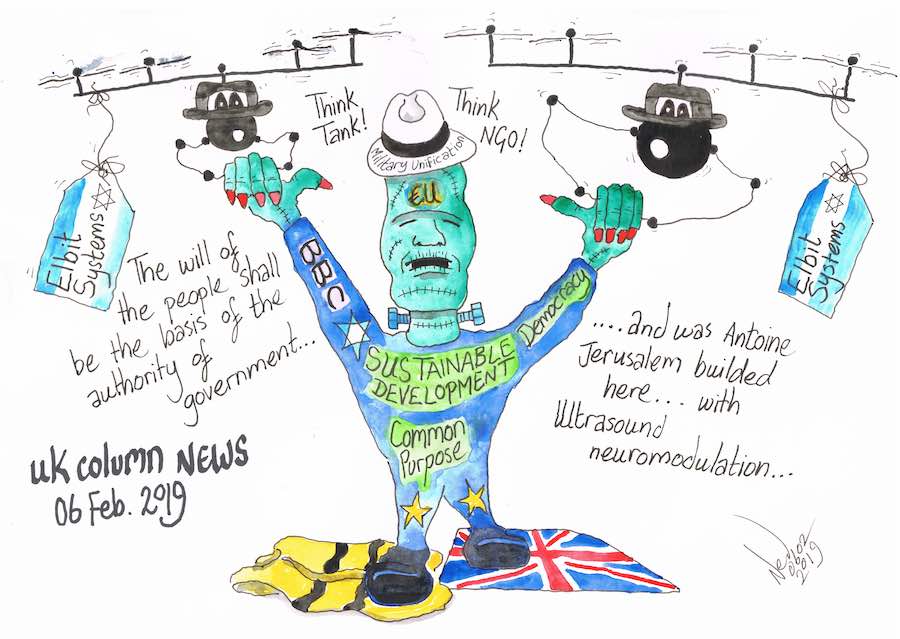 Think
Tank!
Think
NGO!
Military Unification
EU
Elbit
Systems
Elbit
Systems
BBC
The will of
the people shall
be the basis of the
authority of
government...
SUSTAINABLE
DEVELOPMENT
Democracy
Common
Purpose
....and was Antoine
Jerusalem builded
here... with
Ultrasound
neuromodulation...
UK Column NEWS
06 Feb. 2019
06 02
2019